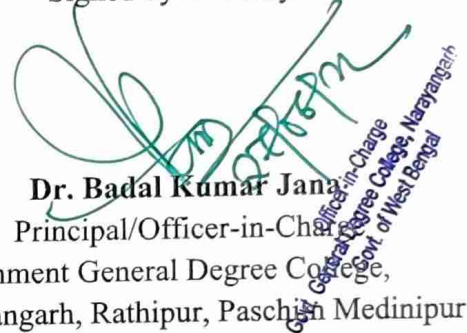 Dr. Badal Kumar Jana
Principal/Officer-in-Charge
nment General Degree College,
angarh, Rathipur, Paschim Medinipur
Officer-in-Charge
Govt. General Degree College, Narayangarh
Govt. of West Bengal